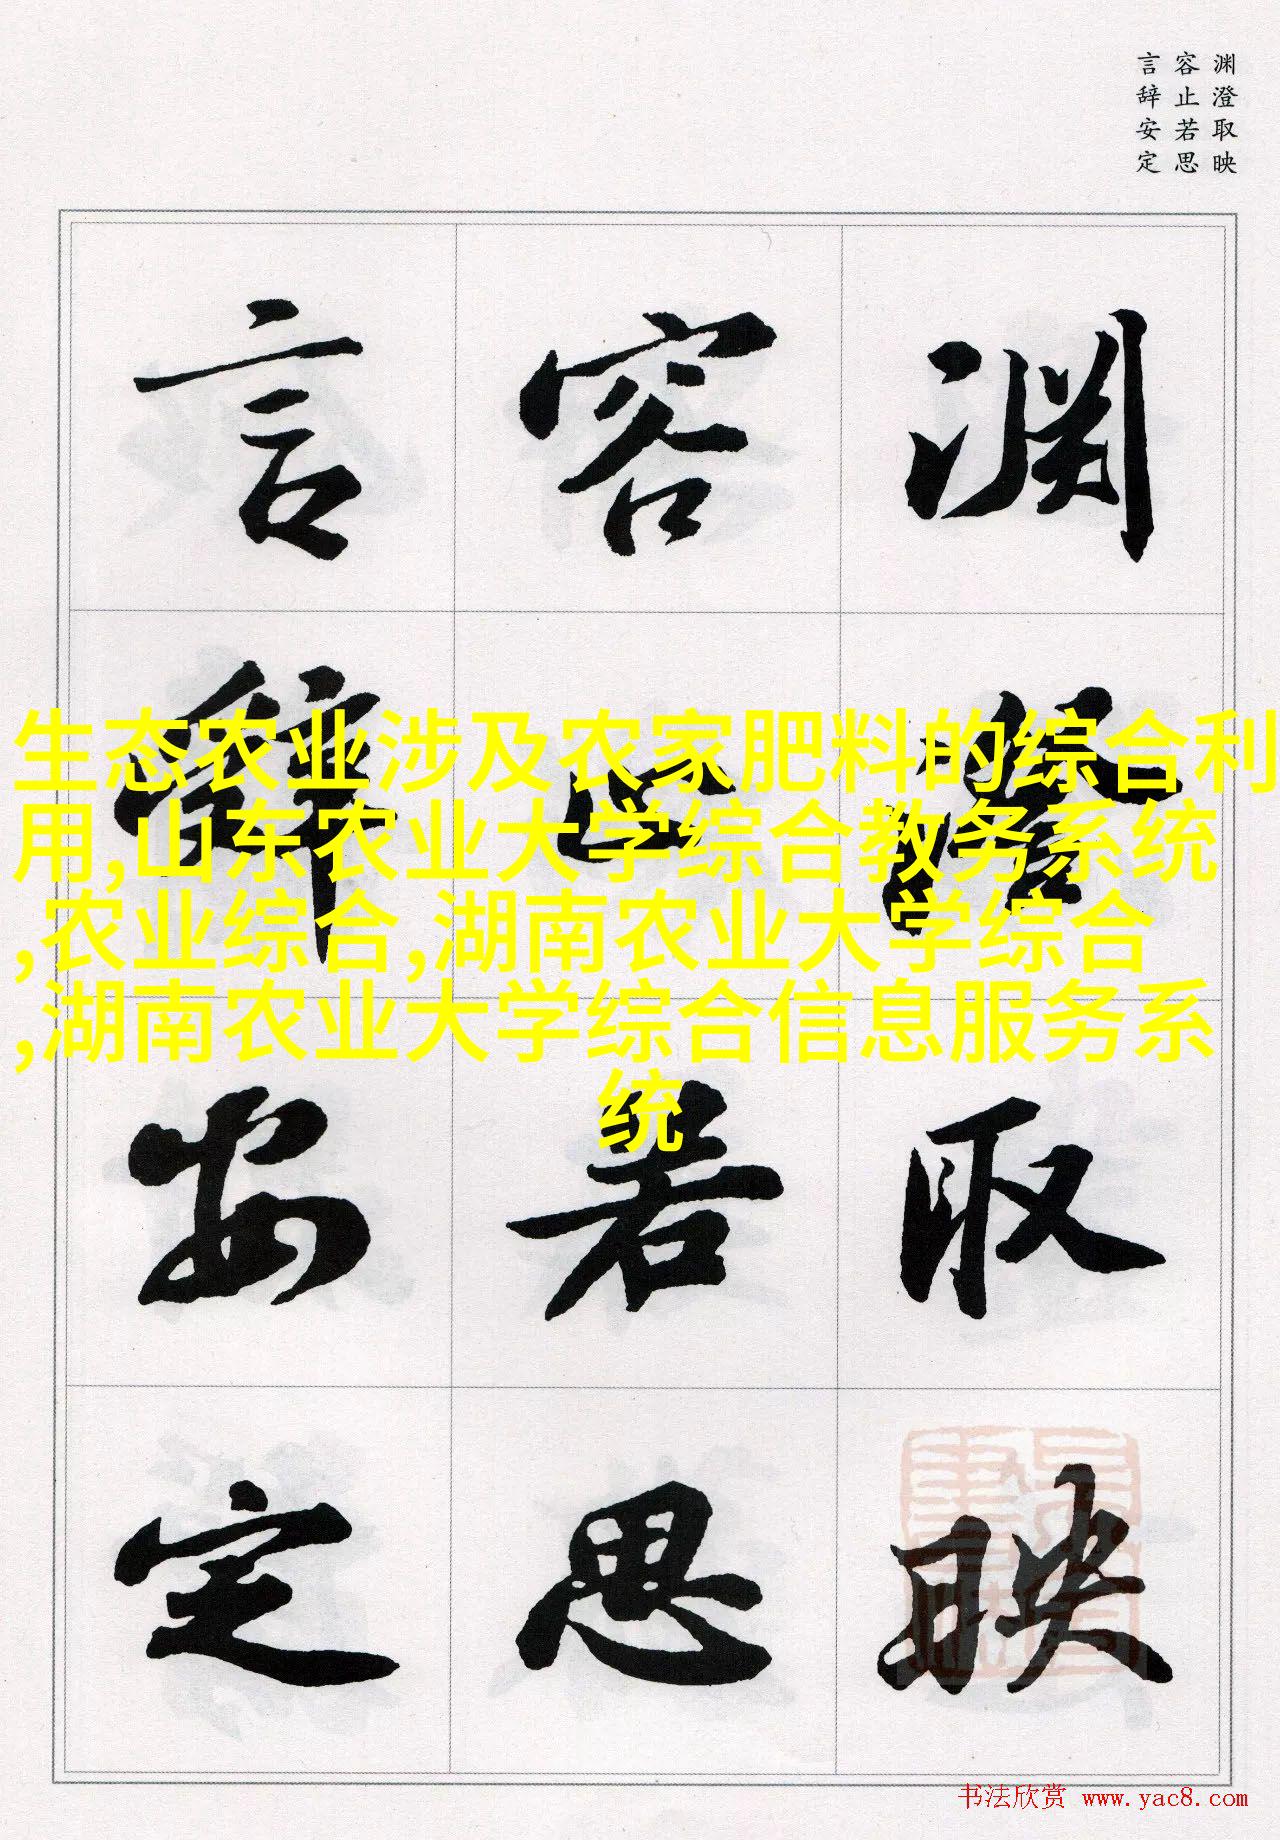 渊澄取映
容止若思
言辞安定
渊澄取映
容止若思
言辞安定
生态农业涉及农家肥料的综合利
用,山东农业大学综合教务系统
,农业综合,湖南农业大学综合
,湖南农业大学综合信息服务系
统
书法欣赏 www.yac8.com